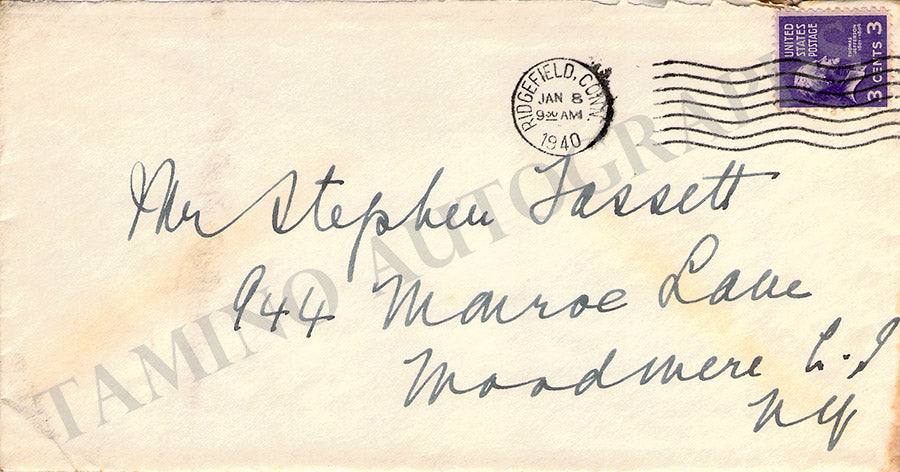 UNITED STATES POSTAGE
THOMAS JEFFERSON
3 CENTS 3
RIDGEFIELD, CONN.
JAN 8
9 00 AM
1940
Mr Stephen Fassett
944 Monroe Lane
Woodmere L.I
NY
TAMINO AUTOGRAPHS